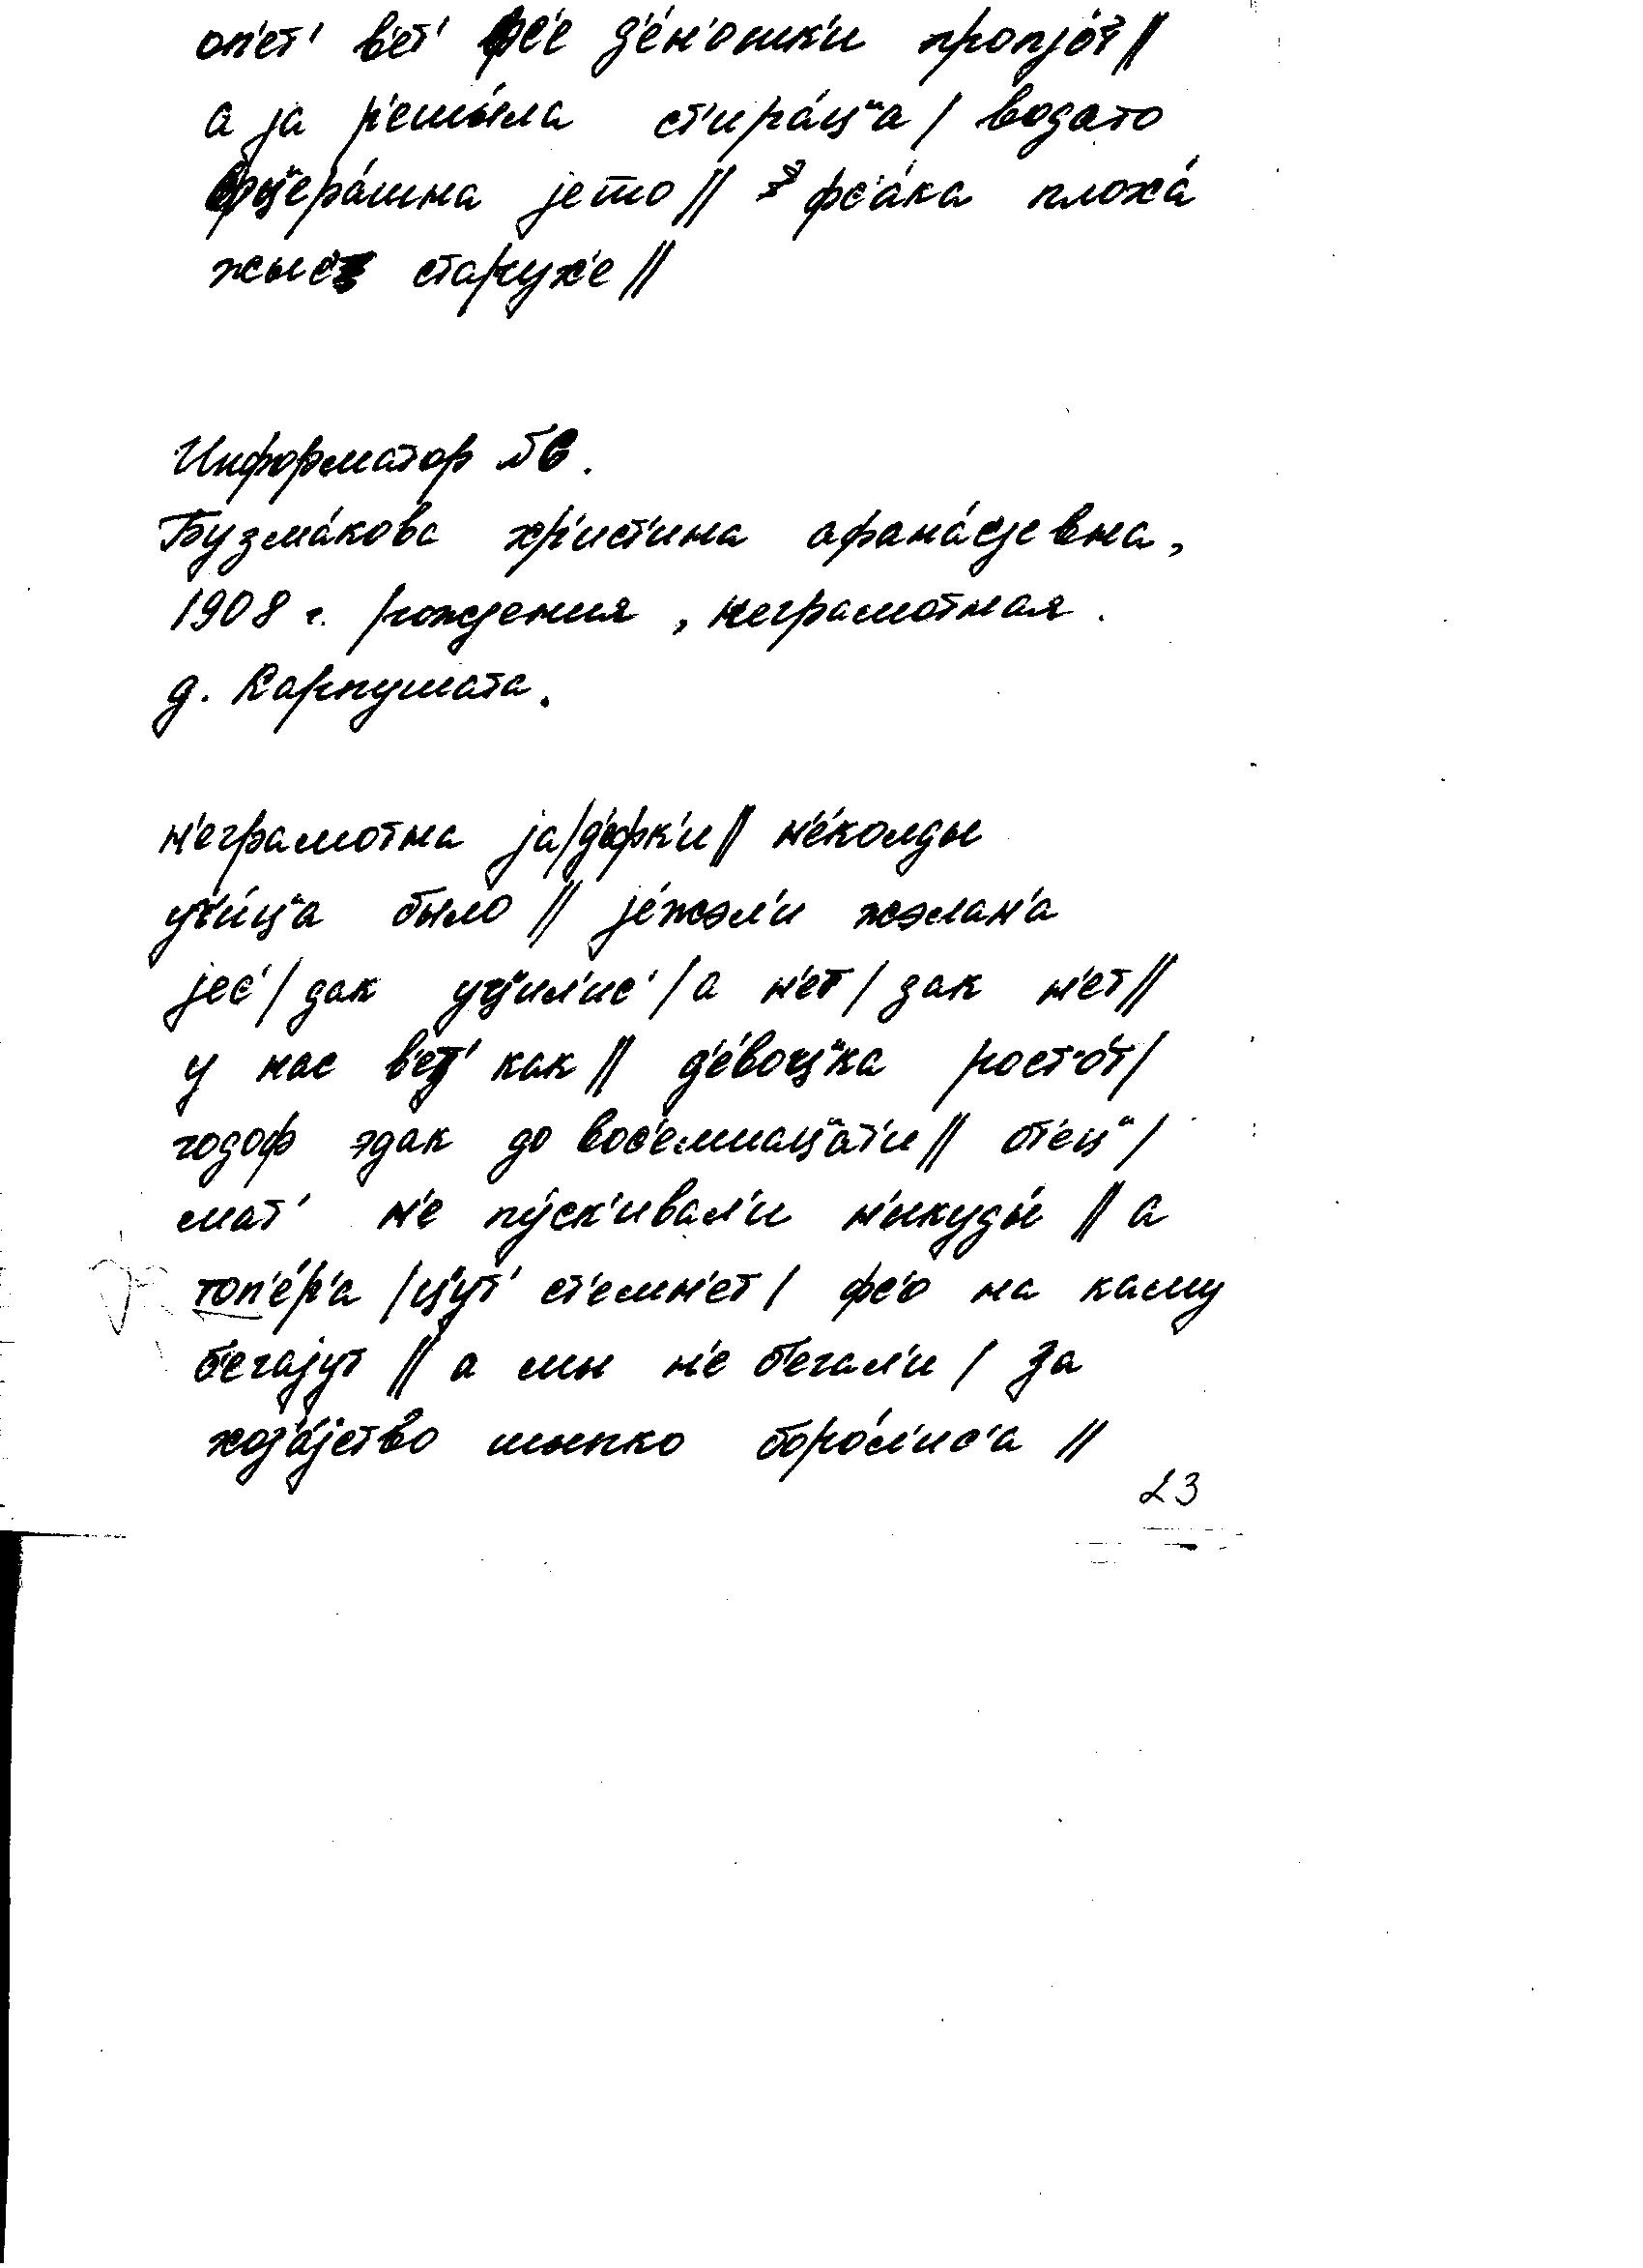 оп'ет' в'ет' фс'е д'е́н'ошк'и пропjо́т//
а jа р'ешы́ла ст'ира́ц"а / водато
фц"ера́шна jето // фс'а́ка плоха́
жыс' старух'е //
Информатор БС.
Бузма́кова хр'ист'ина афана́с'jевна,
1908 г. рождения, неграмотная.
д. Карпушата.
н'еграмотна jа / д'ефк'и // н'е́колды
уч'и́ц"а было // jе́жэл'и жэлан'а
jес' / дак уц"ил'ис' / а н'ет / дак н'ет //
у нас в'ет' как // д'е́воц"ка рост'о́т /
годоф эдак до вос'емнац"ат'и // от'ец" /
мат' н'е пу́ск'ивал'и н'икуды́ // а
топ'е́р'а / ц"ут' ст'емн'ет / фс'о на каму
б'егаjут // а мы н'е б'егал'и / за
хоз'а́jство шыпко боро́л'ис'а //
23